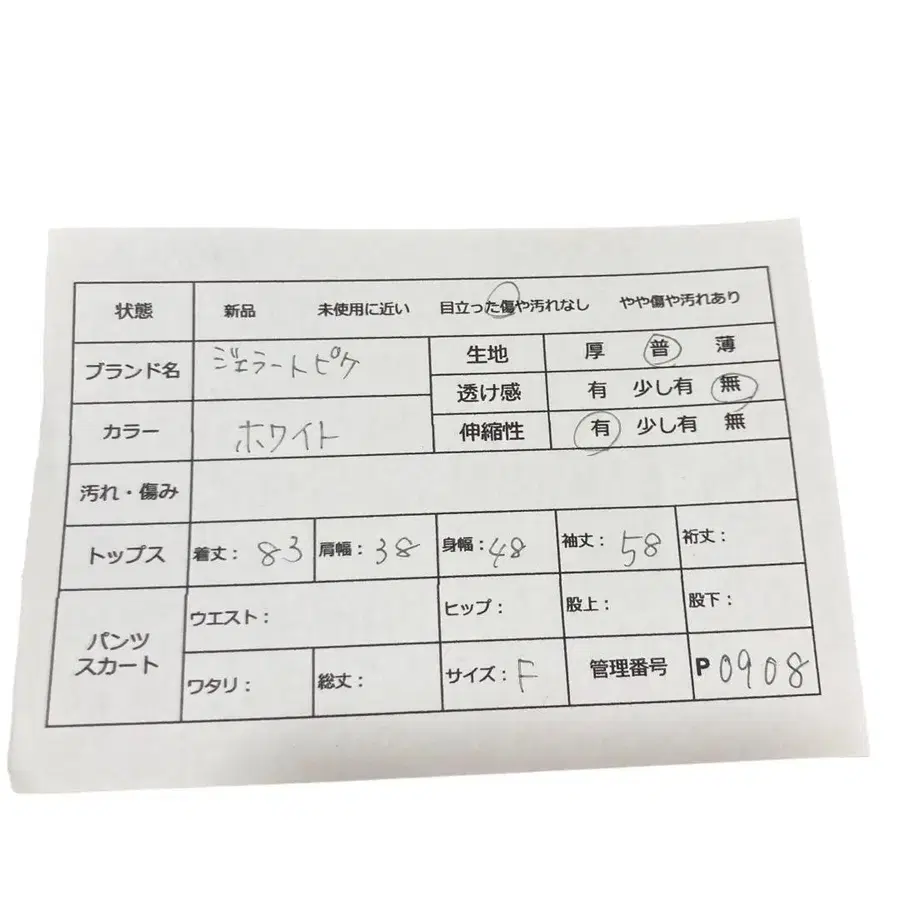 状態 新品 未使用に近い 目立った傷や汚れなし やや傷や汚れあり
ブランド名 ジェラートピケ 生地 厚 普 薄
透け感 有 少し有 無
カラー ホワイト 伸縮性 有 少し有 無
汚れ・傷み
トップス 着丈: 83 肩幅: 38 身幅: 48 袖丈: 58 裄丈:
パンツ
スカート
ウエスト: ヒップ: 股上: 股下:
ワタリ: 総丈: サイズ: F 管理番号 P 0908